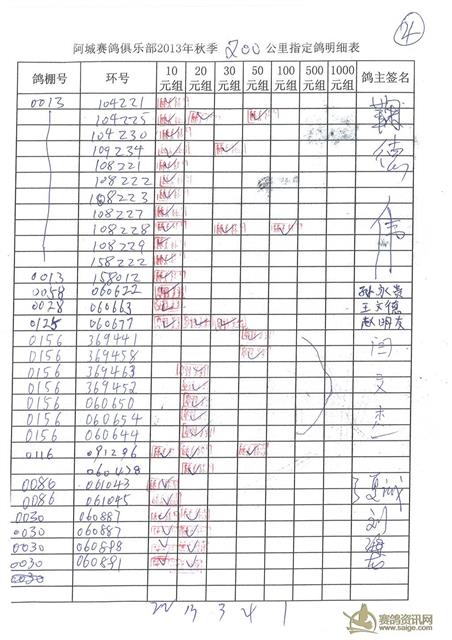 4
阿城赛鸽俱乐部2013年秋季 200 公里指定鸽明细表
鸽棚号 环号 10元组 20元组 30元组 50元组 100元组 500元组 1000元组 鸽主签名
0013 104221
104225
104230
109234
108221
108222
108223
108227
108228
108229
158222
0013 158012
0058 060622 孙永贵
0028 060663 王文德
0125 060677 赵明友
0156 369441
0156 369458
0156 369463
0156 369452
0156 060650
0156 060654
0156 060644
0116 091296
060438
0086 061043
0086 061045
0030 060887
0030 060887
0030 060888
0030 060881
0030
22 13 3 4 1
赛鸽资讯网
www.saige.com